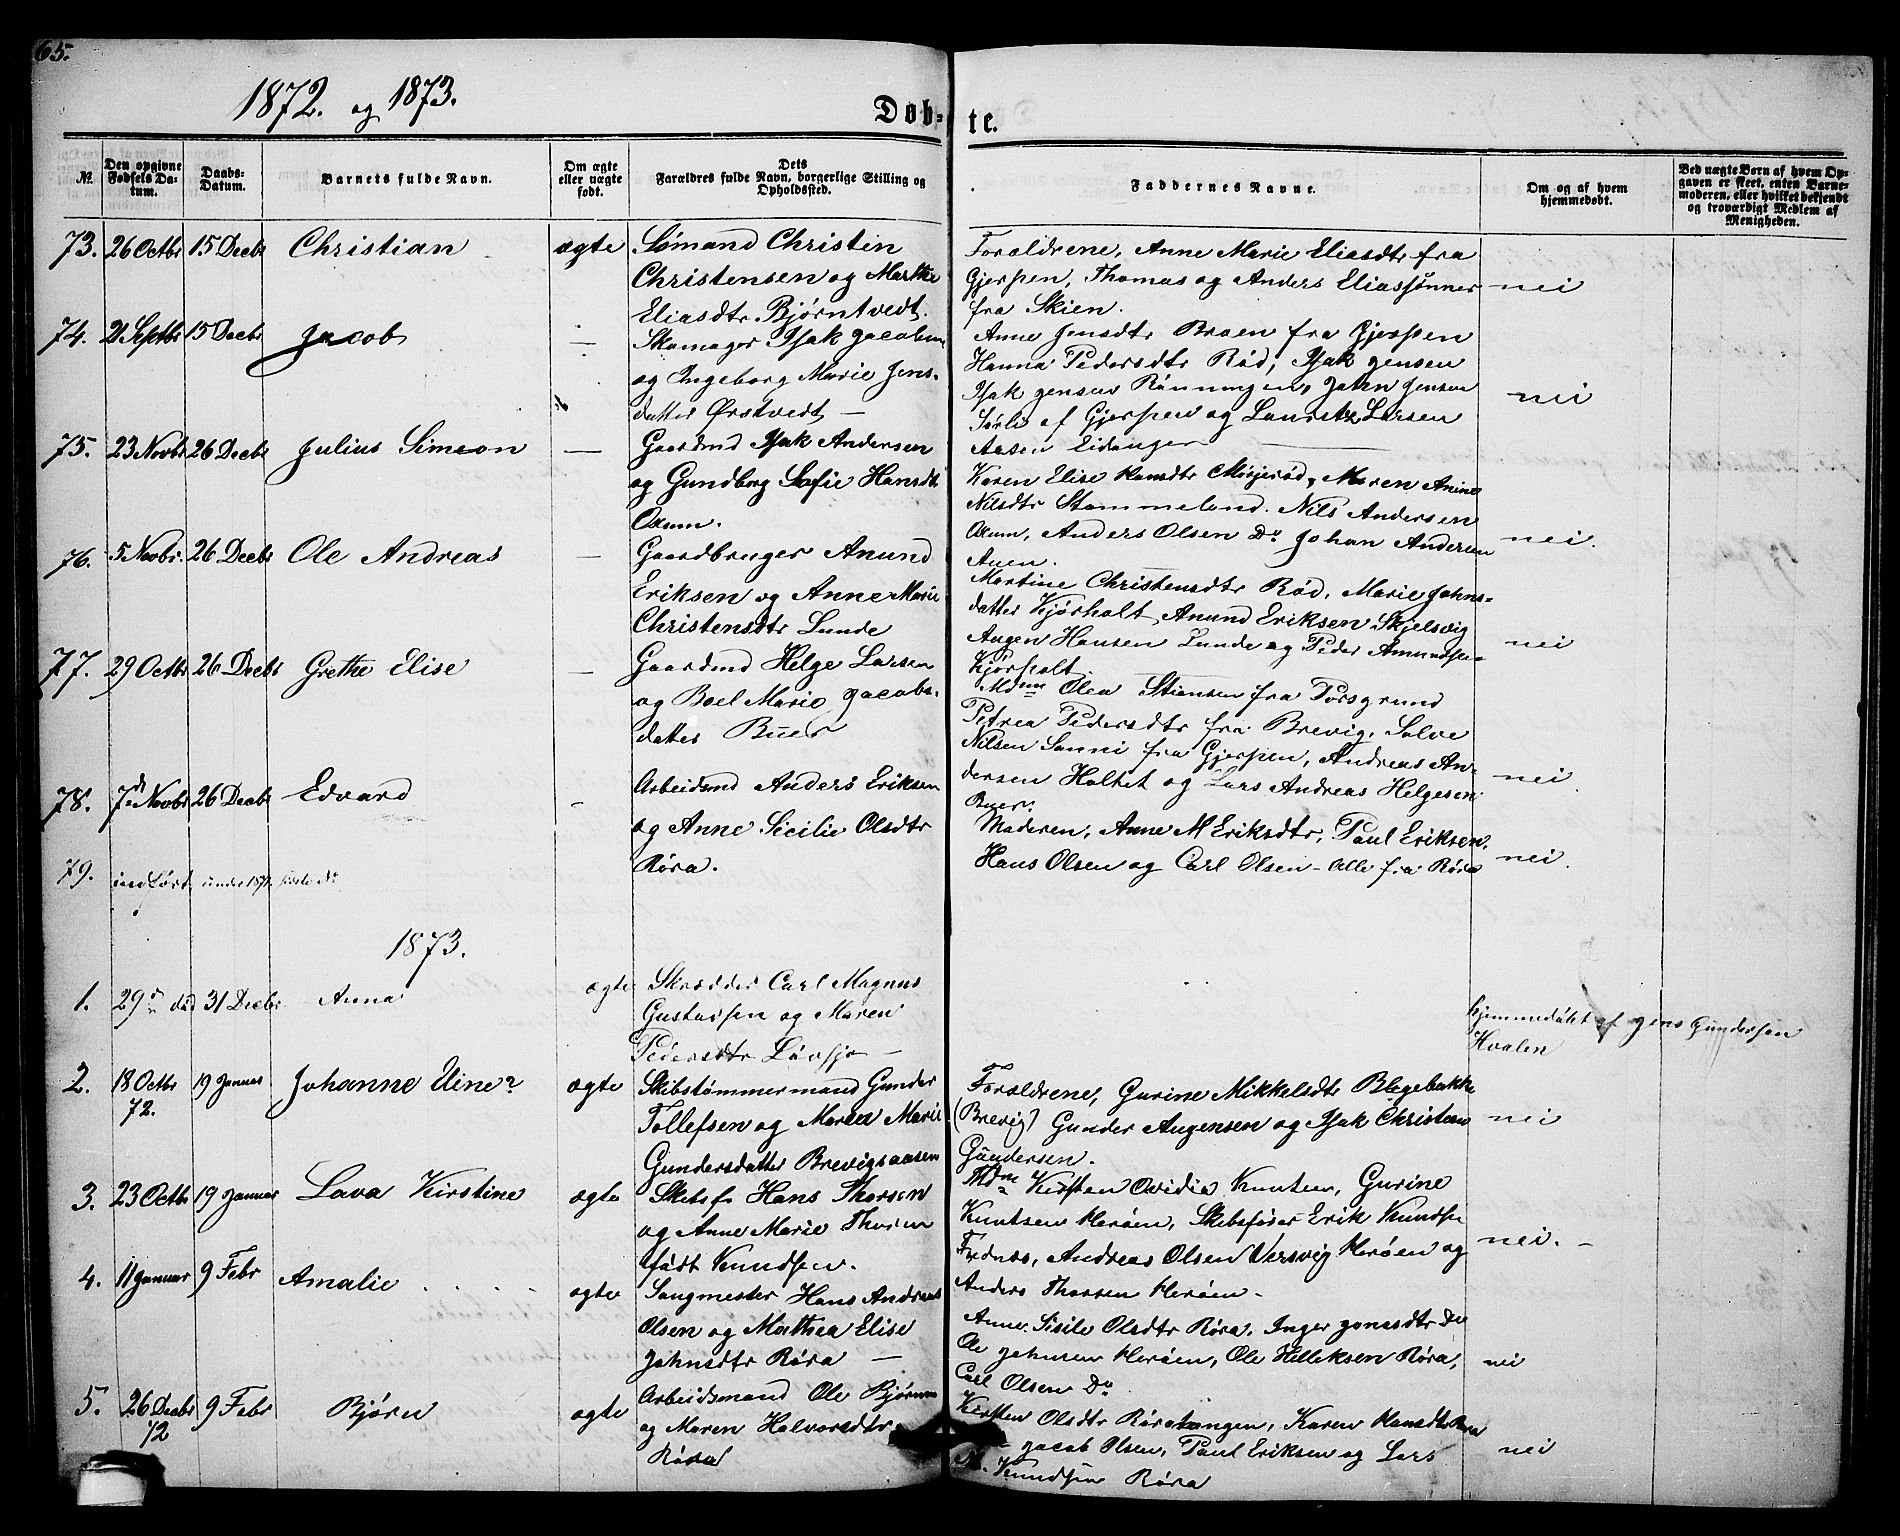 65.
1872. og 1873.
Døb- te.
No.
Den opgivne Fødsels Datum.
Daabs-Datum.
Barnets fulde Navn.
Om ægte eller uægte født.
Dets Forældres fulde Navn, borgerlige Stilling og Opholdssted.
Faddernes Navne.
Om og af hvem hjemmedøbt.
Ved uægte Børn af hvem Opgaven er skeet, enten Barnemoderen, eller hvilket bekjendt og troværdigt Medlem af Menigheden.
73. 26 Octbr 15 Decbr Christian ægte
Sømand Christen
Christensen og Marthe
Eliasdtr Bjørntvedt.
Forældrene, Anne Marie Eliasdtr fra
Gjerpen, Thomas og Anders Eliassønner
fra Skien.
nei
74. 21 Septbr 15 Decbr Jacob —
Skomager Isak Jacobsen
og Ingeborg Marie Jens-
datter Ørstvedt —
Anne Jensdtr Braen fra Gjerpen
Hanna Pedersdtr Rød, Isak Jensen
Isak Jensen Rønningen, John Jensen
Sørli af Gjerpen og Lauritz Larsen
Aasen Eidanger
nei
75. 23 Novbr 26 Decbr Julius Simeon —
Gaardmd Isak Andersen
og Gundborg Sofie Hansdtr
Oxum.
Karen Elise Hansdtr Mørjerød, Maren Anine
Nilsdtr Stammeland. Nils Andersen
Oxum, Anders Olsen Do Johan Andersen
Auen.
nei.
76. 5 Novbr. 26 Decbr Ole Andreas —
Gaardbruger Anund
Eriksen og Anne Marie
Christensdtr Lunde
Martine Christensdtr Rød, Marie Johns-
datter Kjørholt, Anund Eriksen Skjelsvig
Augen Hansen Lunde og Peder Amundsen
Kjørholt
nei
77. 29 Octbr 26 Decbr Grethe Elise —
Gaardmd Helge Larsen
og Boel Marie Jacobs-
datter Buer
Mdme Olea Stiansen fra Porsgrund
Petrea Pedersdtr fra Brevig, Salve
Nilsen Sanni fra Gjerpen, Andreas An-
dersen Holtet og Lars Andreas Helgesen
Buer.
nei.
78. 7de Novbr 26 Decbr Edvard -
Arbeidsmd Anders Eriksen
og Anne Sicilie Olsdtr
Røra.
Moderen, Anne M Eriksdtr, Paul Eriksen,
Hans Olsen og Carl Olsen - Alle fra Røra
nei.
79. indført under 1871 sidste No
1873.
1. 29de 31 Decbr Anna ægte
Skrædder Carl Magnus
Gustavsen og Maren
Pedersdtr Løvsjø —
hjemmedøbt af Jens Gundersen
Hvalen
2. 18 Octbr 72. 19 Januar Johanne Eline? ægte
Skibstømmermand Gunder
Tollefsen og Maren Marie
Gundersdatter Brevigsaasen
Forældrene, Gurine Mikkelsdtr Blegebakke
(Brevig) Gunder Augensen og Isak Christian
Gundersen.
nei
3. 23 Octbr 19 Januar Lava Kirstine ægte
Skibsf. Hans Thorsen
og Anne Marie Thorsen
født Knudsen.
Mdme Kirsten Ovidia Knutsen, Gurine
Knutsen Herøen, Skibsfører Erik Knudsen
Frednes, Andreas Olsen Versvig Herøen og
Anders Thorsen Herøen -
nei. -
4. 11 Januar 9 Febr Amalie ægte
Saugmester Hans Andreas
Olsen og Mathea Elise
Johnsdtr Røra —
Anne Sisile Olsdtr Røra, Inger Jonasdtr Do
Ole Johnsen Herøen, Ole Helleksen Røra,
Carl Olsen Do
nei
5. 26 Decbr 72 9 Febr Bjørn ægte
Arbeidsmand Ole Bjørnsen
og Maren Halvorsdtr
Røra
Kirsten Olsdtr Røratangen, Karen Hansdtr Røra
Jacob Olsen, Paul Eriksen og Lars
Knudsen Røra
nei